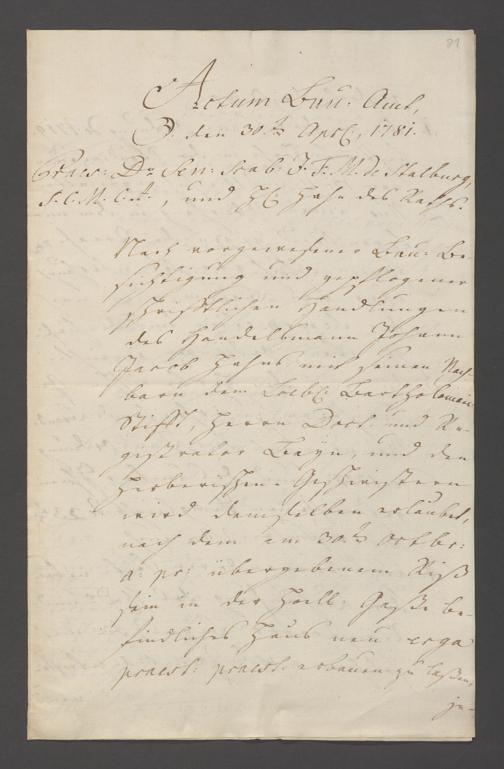 81
Actum Bau: Amt,
D. den 30.ten Apl:, 1781.
Praes: Dn Sen: Scab: J. F. M. de Stalburg,
S. C. M. C. A., und H. Hahn des Raths.
Nach vorgewesener Bau: Be-
sichtigung und gepflogener
schrifftlichen Handlungen
des Handelsmann Johann
Jacob Hahns mit seinen Nach-
barn dem Löbl: Bartholomäi
Stifft, Herrn Doct: und Re-
gistrator Bayn, und den
Geschwistern
wird demselben erlaubet,
nach dem am 30.ten Octbr:
a: pr: übergebenem Riß
sein in der Höll-Gaße be-
findliches Hauß neu erga
praest: praest: erbauen zu laßen,
je-